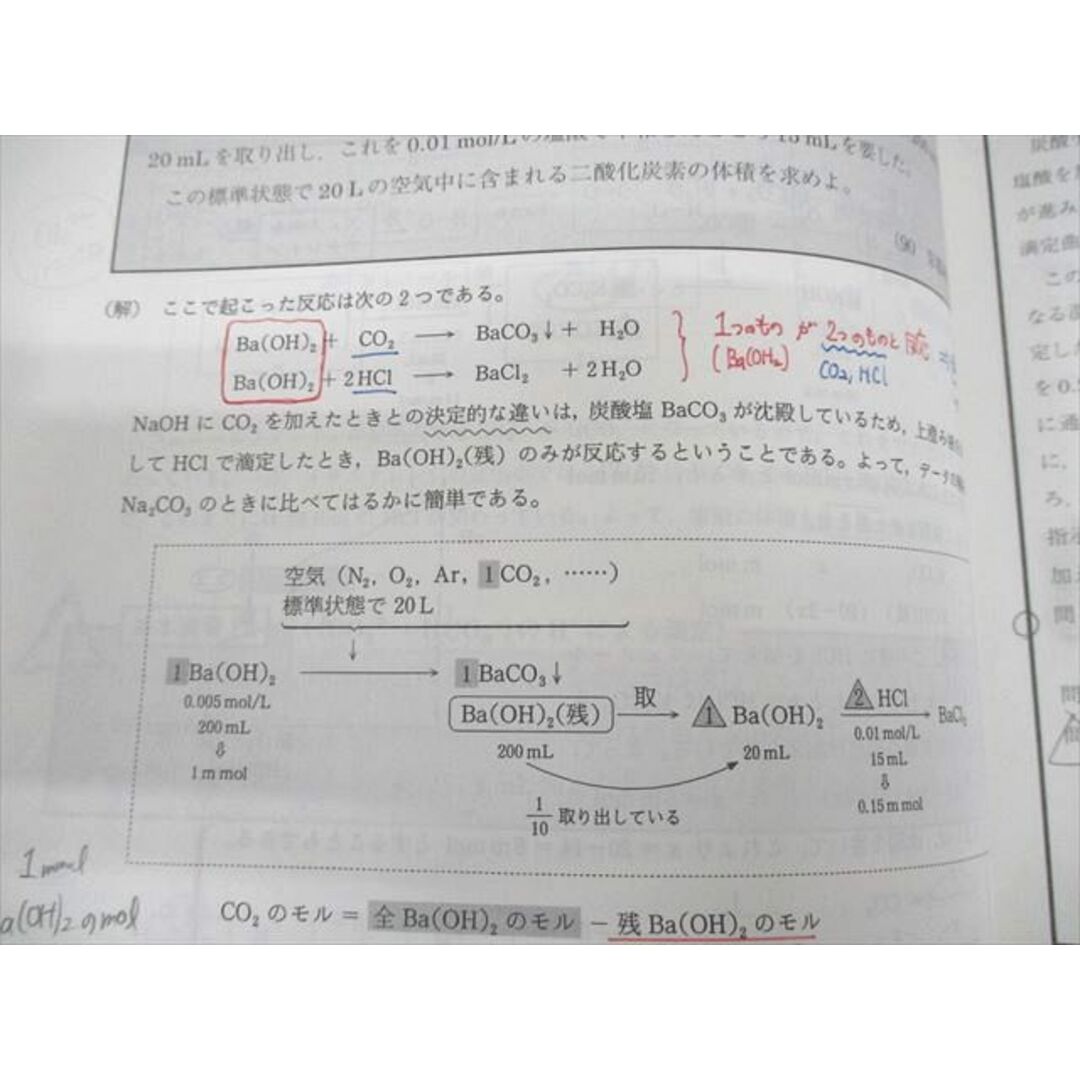 20 mLを取り出し，これを0.01 mol/Lの塩酸で 15 mLを要した。
この標準状態で20 Lの空気中に含まれる二酸化炭素の体積を求めよ。
(90
(解) ここで起こった反応は次の2つである。
Ba(OH)₂ + CO₂ ⟶ BaCO₃↓ + H₂O
Ba(OH)₂ + 2HCl ⟶ BaCl₂ + 2H₂O
1つのもの が 2つのものと 反応
(Ba(OH)₂) CO₂, HCl
NaOH に CO₂ を加えたときとの決定的な違いは，炭酸塩 BaCO₃ が沈殿しているため，上澄み
して HCl で滴定したとき，Ba(OH)₂(残) のみが反応するということである。よって，データの
Na₂CO₃ のときに比べてはるかに簡単である。
空気 (N₂, O₂, Ar, 1 CO₂, ……)
標準状態で 20 L
1 Ba(OH)₂ ⟶ 1 BaCO₃↓
0.005 mol/L
200 mL
⇩
1 m mol
Ba(OH)₂(残) 取 ⟶ 1 Ba(OH)₂ 2 HCl ⟶ BaCl₂
200 mL 20 mL
0.01 mol/L
15 mL
⇩
0.15 m mol
1/10 取り出している
1 mmol
a(OH)₂のmol
CO₂ のモル = 全 Ba(OH)₂ のモル − 残 Ba(OH)₂ のモル
塩酸を
が進み
滴定曲
この
なる
定し
を0.
に通
に，
ろ，
指示
加え
問